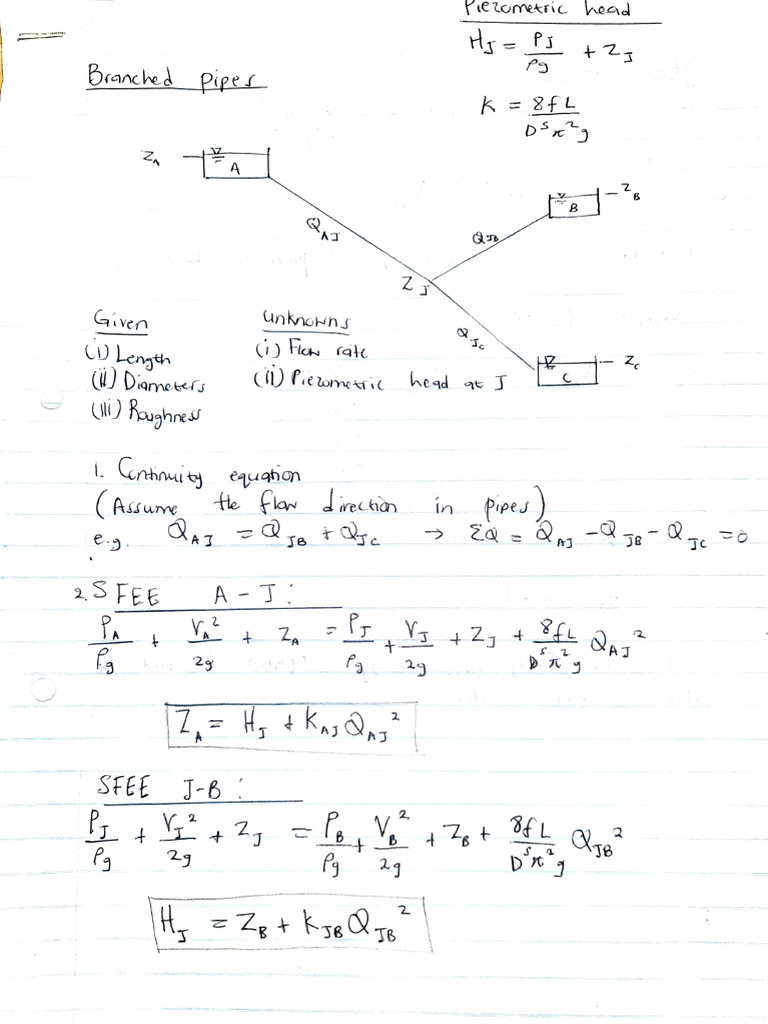 Piezometric head
H_J = P_J/ρg + Z_J
Branched pipes
K = 8fL/D⁵π²g
Z_A
A
Z_B
B
Q_AJ
Q_JB
Z_J
Q_JC
Z_C
C
Given
unknowns
(i) Length
(i) Flow rate
(ii) Diameters
(ii) Piezometric head at J
(iii) Roughness
1. Continuity equation
(Assume the flow direction in pipes)
e.g. Q_AJ = Q_JB + Q_JC → ΣQ = Q_AJ - Q_JB - Q_JC = 0
2. SFEE A - J :
P_A/ρg + V_A²/2g + Z_A = P_J/ρg + V_J²/2g + Z_J + 8fL/D⁵π²g Q_AJ²
Z_A = H_J + K_AJ Q_AJ²
SFEE J-B :
P_J/ρg + V_J²/2g + Z_J = P_B/ρg + V_B²/2g + Z_B + 8fL/D⁵π²g Q_JB²
H_J = Z_B + K_JB Q_JB²